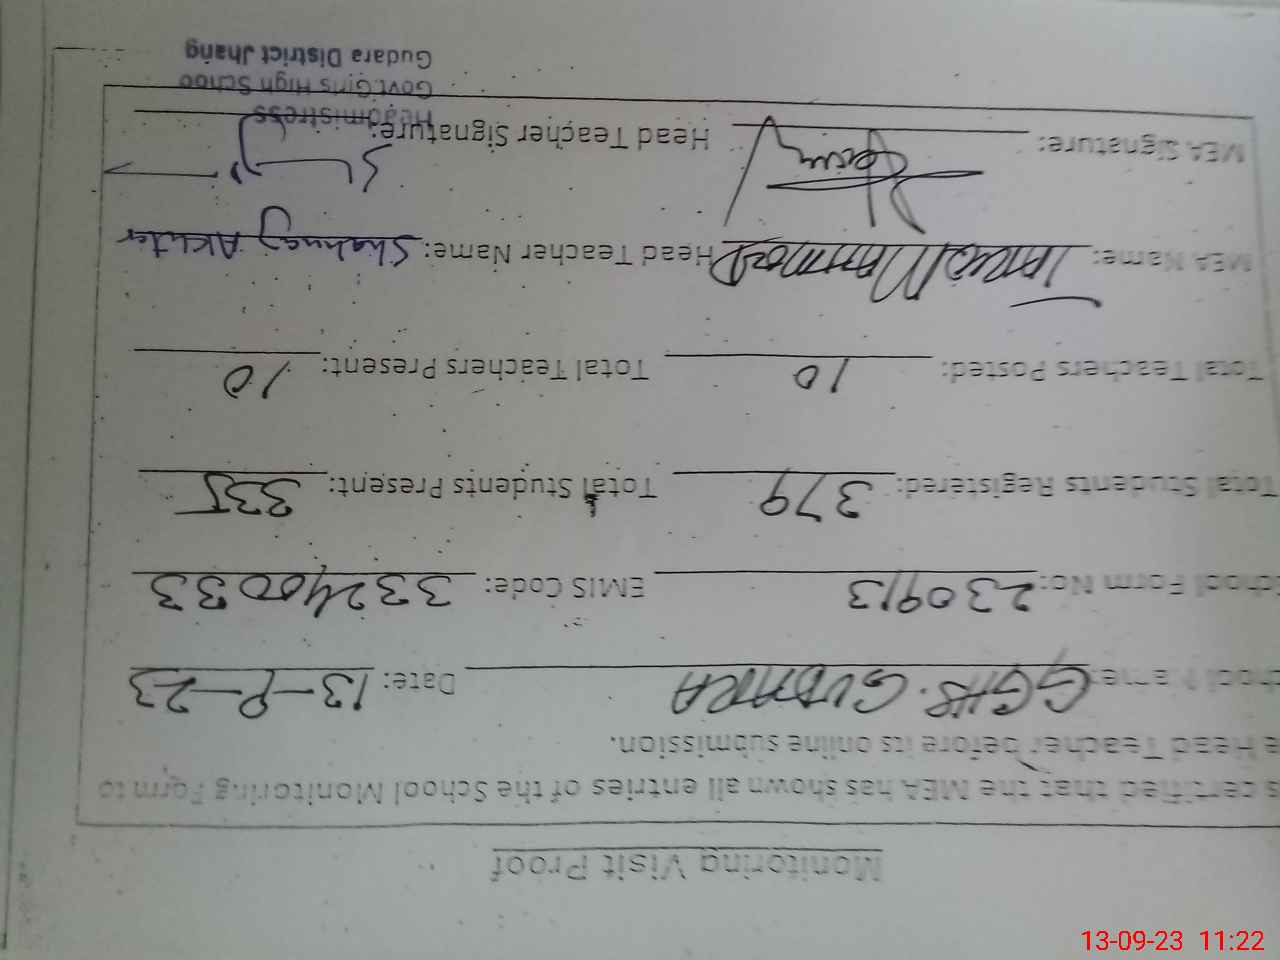 Monitoring Visit Proof
s certified that the MEA has shown all entries of the School Monitoring Form to
e Head Teacher before its online submission.
hool Name: GGHS. GUDARA Date: 13-9-23
chool Form No: 230913 EMIS Code: 33240033
Total Students Registered: 379 Total Students Present: 335
Total Teachers Posted: 10 Total Teachers Present: 10
MEA Name: Head Teacher Name: Shahnaz Akhter
MEA Signature: Head Teacher Signature:
Headmistress
Govt.Girls High School
Gudara District Jhang
13-09-23 11:22